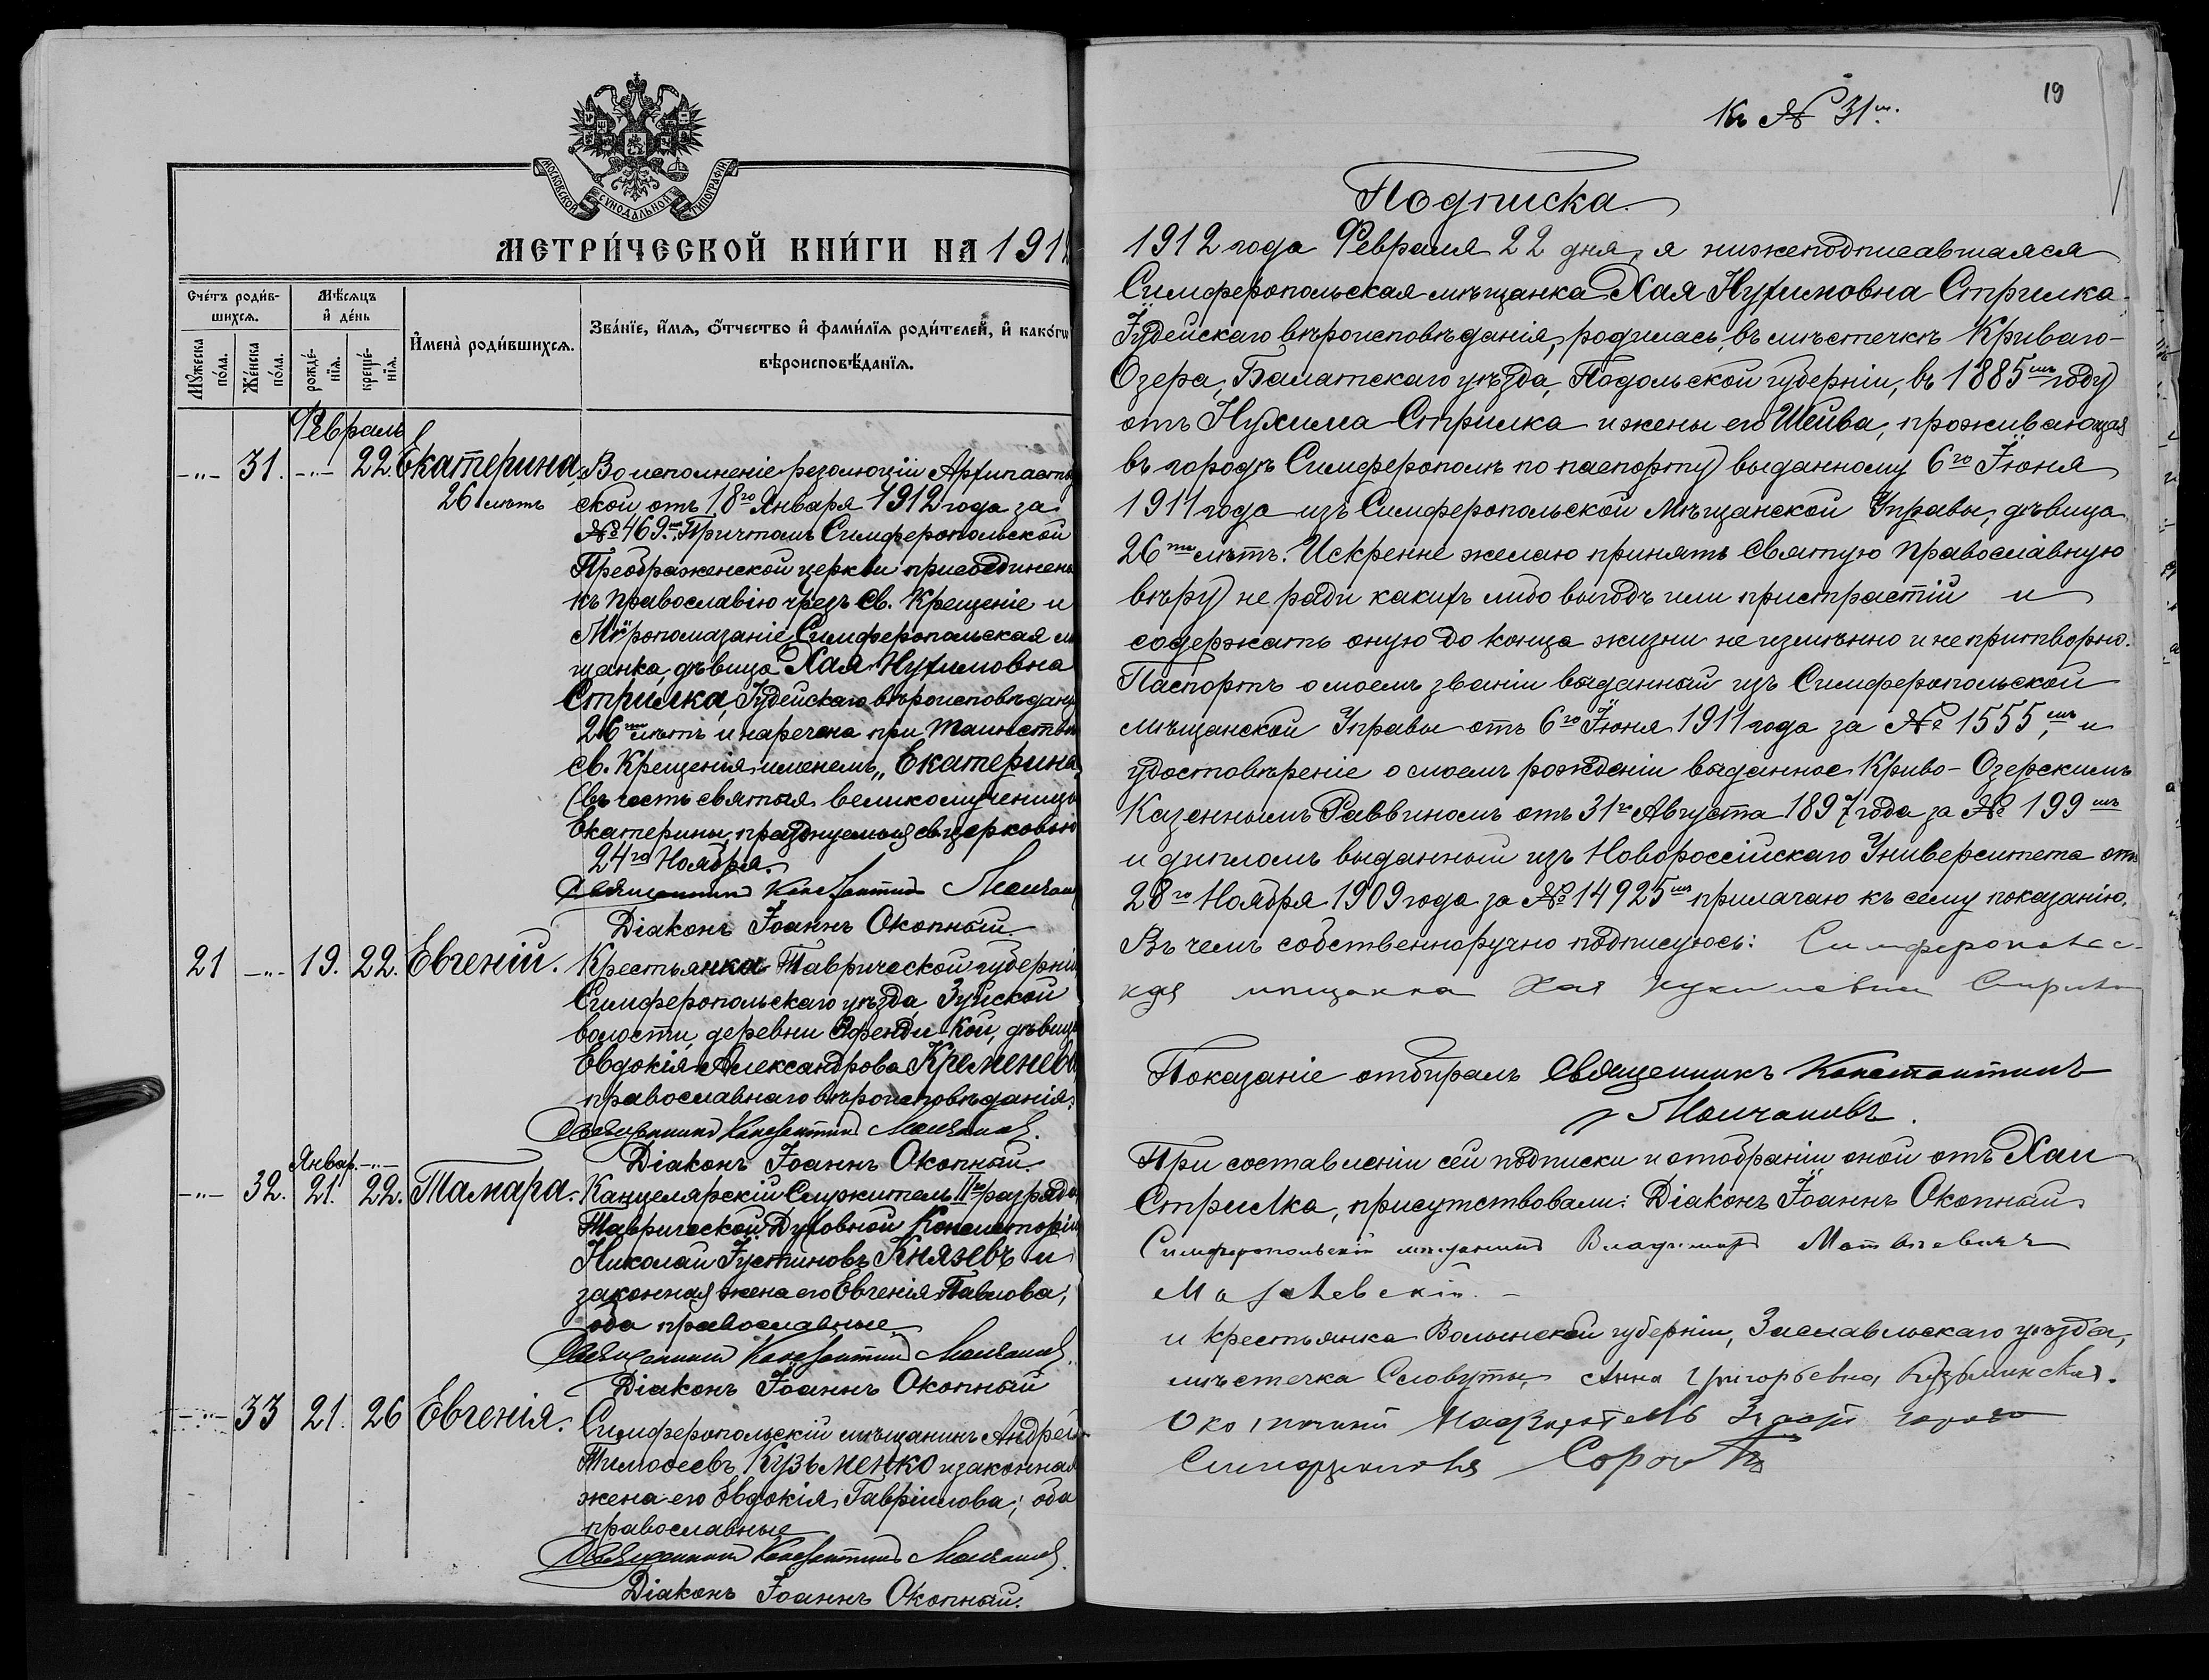 МОСКОВСКОЙ СѴНОДАЛЬНОЙ ТИПОГРАФІИ
МЕТРИ́ЧЕСКОЙ КНИ́ГИ НА 191
Сче́тъ роди́в-
шихся.
Мѣ́сяцъ
и҆ де́нь
И҆мена̀ роди́вшихся.
Зва́нїе, и҆́мя, ѻ҆́тчество и҆ фами́лїя роди́телей, и҆ како́гѡ
вѣроисповѣ́данїя.
Мꙋ́жеска по́ла.
Же́нска по́ла.
рожде́-нїя.
креще́-нїя.
Февраль
-"- 31. -"- 22. Екатерина, Во исполненіе резолюціи Архипастыр
26 лѣтъ ской отъ 18го Января 1912 года за
№ 469мъ, Причтомъ Симферопольской
Преображенской церкви присоединена
къ Православію чрезъ Св. Крещеніе и
Мѵропомазаніе Симферопольская мѣ
щанка, дѣвица Хая Нухимовна
Стрилка, Іудейскаго вѣроисповѣданія
26ти лѣтъ и наречена при Таинствѣ
Св. Крещенія именемъ „Екатерина"
(въ честь святыя великомученицы
Екатерины, празднуемыя св. церковію
24го Ноября.
Священникъ Константинъ Молчанов
Діаконъ Іоаннъ Окопный.
21 -"- 19. 22. Евгеній. Крестьянка Таврической губерніи
Симферопольскаго уѣзда, Зуйской
волости, деревни Эфенди-Кой, дѣвица
Евдокія Александрова Кременев
православнаго вѣроисповѣданія.
Священникъ Константинъ Молчановъ.
Діаконъ Іоаннъ Окопный.
Январ. -"-
-"- 32. 21. 22. Тамара. Канцелярскій Служитель IIго разряда
Таврической Духовной Консисторіи
Николай Іустиновъ Князевъ и
законная жена его Евгенія Павлова;
оба православные
Священникъ Константинъ Молчановъ.
Діаконъ Іоаннъ Окопный
-"- 33 21. 26 Евгенія. Симферопольскій мѣщанинъ Андрей
Тимофеевъ Кузьменко и законная
жена его Евдокія Гавріилова; оба
православные
Священникъ Константинъ Молчановъ.
Діаконъ Іоаннъ Окопный.
19
Къ № 31му.
Подписка.
1912 года Февраля 22 дня, я нижеподписавшаяся
Симферопольская мѣщанка Хая Нухимовна Стрилка
Іудейскаго вѣроисповѣданія, родилась въ мѣстечкѣ Криваго-
Озера, Балатскаго уѣзда, Подольской губерніи, въ 1885мъ году
отъ Нухима Стрилка и жены его Шейва, проживающая
въ городѣ Симферополѣ по паспорту выданному 6го Іюня
1911 года изъ Симферопольской Мѣщанской Управы, дѣвица
26ти лѣтъ. Искренне желаю принять Святую Православную
вѣру не ради какихъ либо выгодъ или пристрастій и
содержать оную до конца жизни не измѣнно и не притворно.
Паспортъ о моемъ званіи выданный изъ Симферопольской
мѣщанской Управы отъ 6го Іюня 1911 года за № 1555мъ, и
удостовѣреніе о моемъ рожденіи выданное Криво-Озерскимъ
Казеннымъ Раввиномъ отъ 31го Августа 1897 года за № 199мъ
и дипломъ выданный изъ Новороссійскаго Университета отъ
28го Ноября 1909 года за № 14925мъ прилагаю къ сему показанію.
Въ чемъ собственноручно подписуюсь: Симферопольс-
кая мѣщанка Хая Нухимовна Стрилка
Показаніе отбиралъ Священникъ Константинъ
Молчановъ.
При составленіи сей подписки и отобраніи оной отъ Хаи
Стрилка, присутствовали: Діаконъ Іоаннъ Окопный
Симферопольскій мѣщанинъ Владиміръ Матвѣевичъ
и крестьянка Волынской губерніи, Заславльскаго уѣзда,
мѣстечка Словуты, Анна Григорьевна Кузьминская.
Околоточный Надзиратель 3й части города
Симферополя